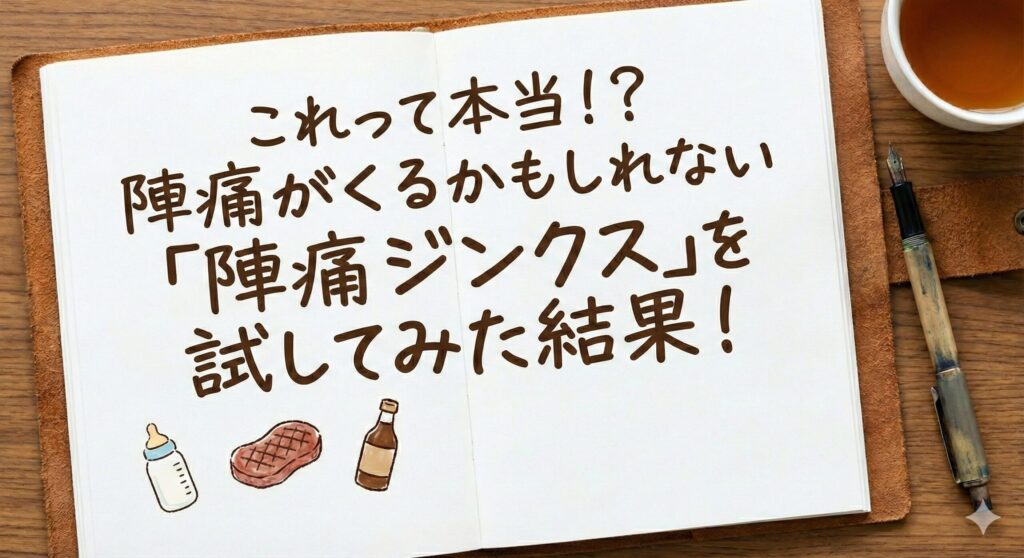 これって本当！？
陣痛がくるかもしれない
「陣痛ジンクス」を
試してみた結果！